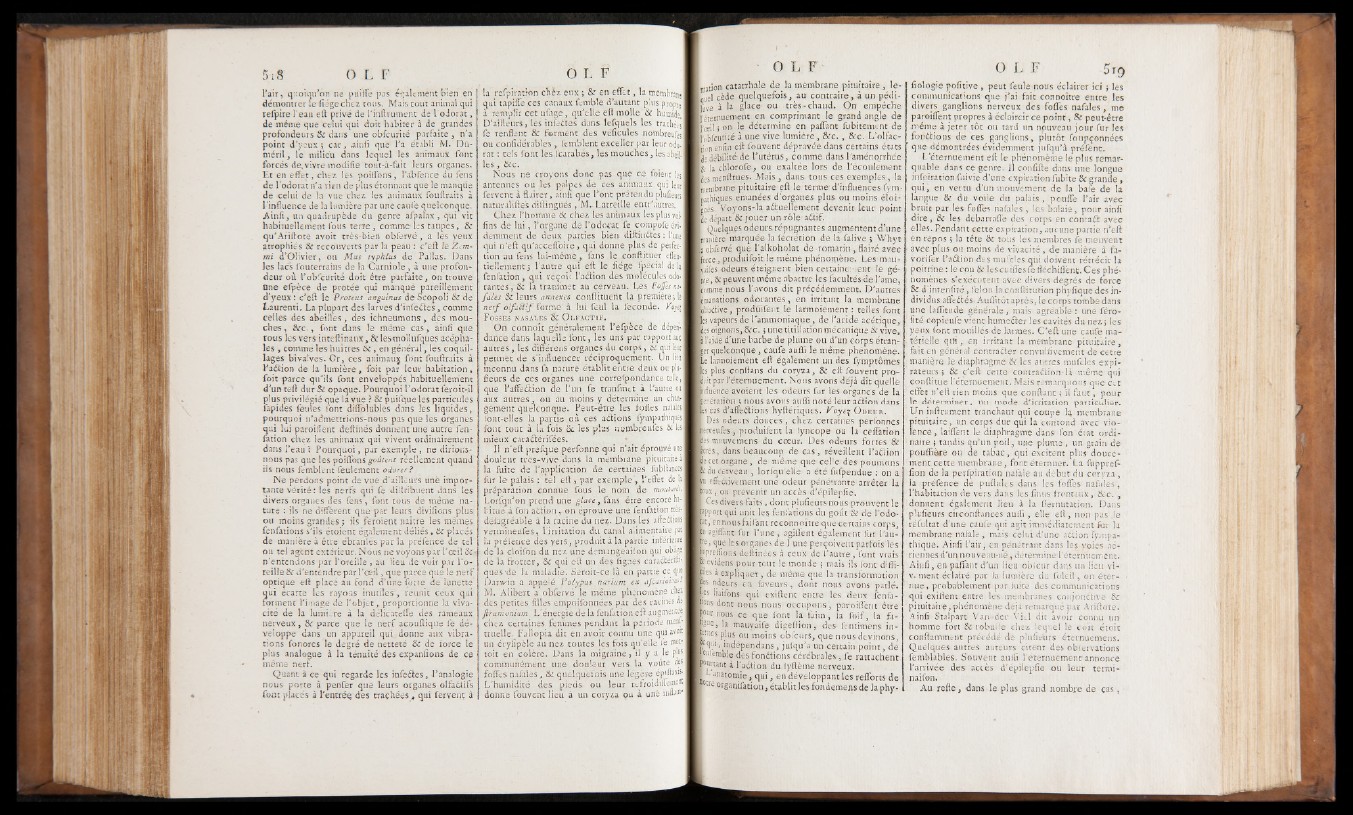 518 O L F
l'air, quoiqu'on ne puisse pas également bien en
démontrer le siége chez tous. Mais tout animal qui
respire l'eau est privé de l'instrument de l'odorat,
de même que celui qui doit habiter à de grandes
profondeurs & dans une obscurité parfaite, n'a
point d'yeux; car, ainsi que l'a établi M. Du-
méril, le milieu dans lequel les animaux sont
forcés de vivre modifie tout-à-fait leurs organes.
Et en effet, chez les poissons, l'absence du sens
de l'odorat n'a rien de plus étonnant que le manque
de celui de la vue chez les animaux soustraits à
l'influence de la lumière par une cause quelconque.
Ainsi, un quadrupède du genre aspalax, qui vit
habituellement sous terre, comme les taupes, &
qu'Aristote avoit très-bien observé, a les yeux
atrophiés & recouverts par la peau: c'est le Zem-
mi d'Olivier, ou Mus typhlus de Pallas. Dans
les lacs souterrains de la Carniole, à une profon-
deur où l'obscurité doit être parfaite, on trouve
une espèce de protée qui manque pareillement
d'yeux: c'est le Proteus anguinus de Scopoli & de
Laurenti. La plupart des larves d'insectes, comme
celles des abeilles, des ichneumons, des mou-
ches, &c., sont dans le même cas, ainsi que
tous les vers intestinaux, & les mollusques acépha-
les, comme les huîtres &, en général, les coquil-
lages bivalves. Or, ces animaux sont soustraits à
l'action de la lumière, soit par leur habitation,
soit parce qu'ils sont enveloppés habituellement
d'un test dur & opaque. Pourquoi l'odorat seroit-il
plus privilégié que la vue? & puisque les particules
sapides seules sont dissolubles dans les liquides,
pourquoi n'admettrions-nous pas que les organes
qui lui paroissent destinés donnent une autre sen-
sation chez les animaux qui vivent ordinairement
dans l'eau? Pourquoi, par exemple, ne dirions-
nous pas que les poissons goûtent réellement quand
ils nous semblent seulement odorer?
Ne perdons point de vue d'ailleurs une impor-
tante vérité: les nerfs qui se distribuent dans les
divers organes des sens, sont tous de même na-
ture: ils ne diffèrent que par leurs divisions plus
ou moins grandes; ils feroient naître les mêmes
sensations s'ils étoient également déliés, & placés
de manière à être ébranlés par la présence de tel
ou tel agent extérieur. Nous ne voyons par l'œil &
n'entendons par l'oreille, au lieu de voir par l'o-
reille & d'entendre par l'œil, que parce que le nerf
optique est placé au fond d'une sorte de lunette
qui écarte les rayons inutiles, réunit ceux qui
forment l'image de l'objet, proportionne la viva-
cité de la lumière à la délicatesse des rameaux
nerveux, & parce que le nerf acoustique se dé-
veloppe dans un appareil qui donne aux vibra-
tions sonores le degré de netteté & de force le
plus analogue à la ténuité des expansions de ce
même nerf.
Quant à ce qui regarde les insectes, l'analogie
nous porte à penser que leurs organes olfactifs
sont placés à l'entrée des trachées, qui servent à
O L F
la respiration chez eux; & en effet, la membrane
qui tapisse ces canaux semble d'autant plus propre
à remplir cet usage, qu'elle est molle & humide.
D'ailleurs, les insectes dans lesquels les trachées
se renflent & forment des vésicules nombreuses
ou considérables, semblent exceller par leur odo-
rat: tels sont les scarabés, les mouches, les abeil-
les, &c.
Nous ne croyons donc pas que ce soient les
antennes ou les palpes de ces animaux qui leur
servent à flairer, ainsi que l'ont prétendu plusieurs
naturalistes distingués, M. Latreille entr'autres.
Chez l'homme & chez les animaux les plus voi-
sins de lui, l'organe de l'odorat se compose évi-
demment de deux parties bien distinctes: l'une
qui n'est qu'accessoire, qui donne plus de perfec-
tion au sens lui-même, sans le constituer essen-
tiellement; l'autre qui est le siége spécial de la
sensation, qui reçoit l'action des molécules odo-
rantes, & la transmet au cerveau. Les Fosses na-
sales & leurs annexes constituent la première; le
nerf olfactif forme à lui seul la seconde. Voyez
FOSSES NASALES & OLFACTIF.
On connoît généralement l'espèce de dépen-
dance dans laquelle sont, les uns par rapport aux
autres, les différens organes du corps, & qui leur
permet de s'influencer réciproquement. Un lien
inconnu dans sa nature établit entre deux ou plu-
sieurs de ces organes une correspondance telle,
que l'affection de l'un se transmet à l'autre ou
aux autres, ou au moins y détermine un chan-
gement quelconque. Peut-être les fosses nasales
sont-elles la partie où ces actions sympathiques
sont tout à la fois & les plus nombreuses & les
mieux caractérisées.
Il n'est presque personne qui n'ait éprouvé une
douleur très-vive dans la membrane pituitaire à
la suite de l'application de certaines substances
sur le palais: tel est, par exemple, l'effet de la
préparation connue sous le nom de moutarde.
Lorsqu'on prend une glace, sans être encore ha-
bitué à son action, on éprouve une sensation très-
désagréable à la racine du nez. Dans les affections
vermineuses, l'irritation du canal alimentaire par
la présence des vers, produit à la partie inférieure
de la cloison du nez une démangeaison qui oblige
de la frotter, & qui est un des signes caractéristi-
ques de la maladie. Seroit-ce là en partie ce que
Darwin a appelé Polypus narium ex ascaridibus?
M. Alibert a observé le même phénomène chez
des petites filles empoisonnées par des racines de
stramonium. L'énergie de la sensation est augmentée
chez certaines femmes pendant la période mens-
truelle. Fallopia dit en avoir connu une qui avoit
un érysipèle au nez toutes les fois qu'elle se met-
toit en colère. Dans la migraine, il y a le plus
communément une douleur vers la voûte des
fosses nasales, & quelquefois une légère épistaxis.
L'humidité des pieds ou leur refroidissement
donne souvent lieu à un coryza ou à une inflam-
O L F
mation catarrhale de la membrane pituitaire, le-
quel cède quelquefois, au contraire, à un pédi-
luve à la glace ou très-chaud. On empêche
l'éternuement en comprimant le grand angle de
l'œil; on le détermine en passant subitement de
l'obscurité à une vive lumière, &c., &c. L'olfac-
tion enfin est souvent dépravée dans certains états
de débilité de l'utérus, comme dans l'aménorrhée
& la chlorose, ou exaltée lors de l'écoulement
des menstrues. Mais, dans tous ces exemples, la
membrane pituitaire est le terme d'influences sym-
pathiques émanées d'organes plus ou moins éloi-
gnés. Voyons-la actuellement devenir leur point
de départ & jouer un rôle actif.
Quelques odeurs répugnantes augmentent d'une
manière marquée la sécrétion de la salive; Whytt
a observé que l'alkoholat de romarin, flairé avec
force, produisoit le même phénomène. Les mau-
vaises odeurs éteignent bien certainement le gé-
nie, & peuvent même abattre les facultés de l'ame,
comme nous l'avons dit précédemment. D'autres
émanations odorantes, en irritant la membrane
olfactive, produisent le larmoiement: telles sont
les vapeurs de l'ammoniaque, de l'acide acétique,
des oignons, &c.; une titillation mécanique & vive,
à l'aide d'une barbe de plume ou d'un corps étran-
ger quelconque, cause aussi le même phénomène.
Le larmoiement est également un des symptômes
les plus constans du coryza, & est souvent pro-
duit par l'éternuement. Nous avons déjà dit quelle
influence avoient les odeurs sur les organes de la
génération; nous avons aussi noté leur action dans
les cas d'affections hystériques. Voyez ODEUR.
Des odeurs douces, chez certaines personnes
nerveuses, produisent la syncope ou la cessation
des mouvemens du cœur. Des odeurs fortes &
âcres, dans beaucoup de cas, réveillent l'action
de cet organe, de même que celle des poumons
& du cerveau, lorsqu'elle a été suspendue: on a
vu effectivement une odeur pénétrante arrêter la
toux, ou prévenir un accès d'épilepsie.
Ces divers faits, dont plusieurs nous prouvent le
rapport qui unit les sensations du goût & de l'odo-
rat, en nous faisant reconnoître que certains corps,
en agissant sur l'une, agissent également sur l'au-
tre, que les organes de l'une perçoivent parfois les
impressions destinées à ceux de l'autre, sont vrais
& évidens pour tout le monde; mais ils sont diffi-
ciles à expliquer, de même que la transformation
des odeurs en saveurs, dont nous avons parlé.
Les liaisons qui existent entre les deux sensa-
tions dont nous nous occupons, paroissent être
pour nous ce que sont la faim, la soif, la fa-
tigue, la mauvaise digestion, des sentimens in-
times plus ou moins obscurs, que nous devinons,
& qui, indépendans, jusqu'à un certain point, de
l'ensemble des fonctions cérébrales, se rattachent
pourtant à l'action du système nerveux.
L'anatomie, qui, en développant les ressorts de
notre organisation, établit les fondemens de la phy-
O L F 519
siologie positive, peut seule nous éclairer ici; les
communications que j'ai fait connoître entre les
divers ganglions nerveux des fosses nasales, me
paroissent propres à éclaircir ce point, & peut-être
même à jeter tôt ou tard un nouveau jour sur les
fonctions de ces ganglions, plutôt soupçonnées
que démontrées évidemment jusqu'à présent.
L'éternuement est le phénomène le plus remar-
quable dans ce genre. Il consiste dans une longue
inspiration suivie d'une expiration subite & grande,
qui, en vertu d'un mouvement de la base de la
langue & du voile du palais, pousse l'air avec
bruit par les fosses nasales, les balaie, pour ainsi
dire, & les débarrasse des corps en contact avec
elles. Pendant cette expiration, aucune partie n'est
en repos; la tête & tous les membres se meuvent
avec plus ou moins de vivacité, de manière à fa-
voriser l'action des muscles qui doivent rétrécir la
poitrine: le cou & les cuisses se fléchissent. Ces phé-
nomènes s'exécutent avec divers degrés de force
& d'intensité, selon la constitution physique des in-
dividus affectés. Aussitôt après, le corps tombe dans
une lassitude générale, mais agréable: une séro-
sité copieuse vient humecter les cavités du nez; les
yeux sont mouillés de larmes. C'est une cause ma-
térielle qui, en irritant la membrane pituitaire,
fait en général contracter convulsivement de cette
manière le diaphragme & les autres muscles expi-
rateurs; & c'est cette contraction-là même qui
constitue l'éternuement. Mais remarquons que cet
effet n'est rien moins que constant: il faut, pour
le déterminer, un mode d'irritation particulier.
Un instrument tranchant qui coupe la membrane
pituitaire, un corps dur qui la contond avec vio-
lence, laissent le diaphragme dans son état ordi-
naire; tandis qu'un poil, une plume, un grain de
poussière ou de tabac, qui excitent plus douce-
ment cette membrane, font éternuer. La suppres-
sion de la perspiration nasale au début du coryza,
la présence de pustules dans les fosses nasales,
l'habitation de vers dans les sinus frontaux, &c.,
donnent également lieu à la sternutation. Dans
plusieurs circonstances aussi, elle est, non pas le
résultat d'une cause qui agit immédiatement sur la
membrane nasale, mais celui d'une action sympa-
thique. Ainsi l'air, en pénétrant dans les voies aé-
riennes d'un nouveau-né, détermine l'éternuement.
Ainsi, en passant d'un lieu obscur dans un lieu vi-
vement éclairé par la lumière du soleil, on éter-
nue, probablement par suite des communications
qui existent entre les membranes conjonctive &
pituitaire, phénomène déjà remarqué par Aristote.
Ainsi Stalpart Van-der-Viel dit avoir connu un
homme fort & robuste chez lequel le coït étoit
constamment précédé de plusieurs éternuemens.
Quelques autres auteurs citent des observations
semblables. Souvent aussi l'éternuement annonce
l'arrivée des accès d'épilepsie ou leur termi-
naison.
Au reste, dans le plus grand nombre de cas,